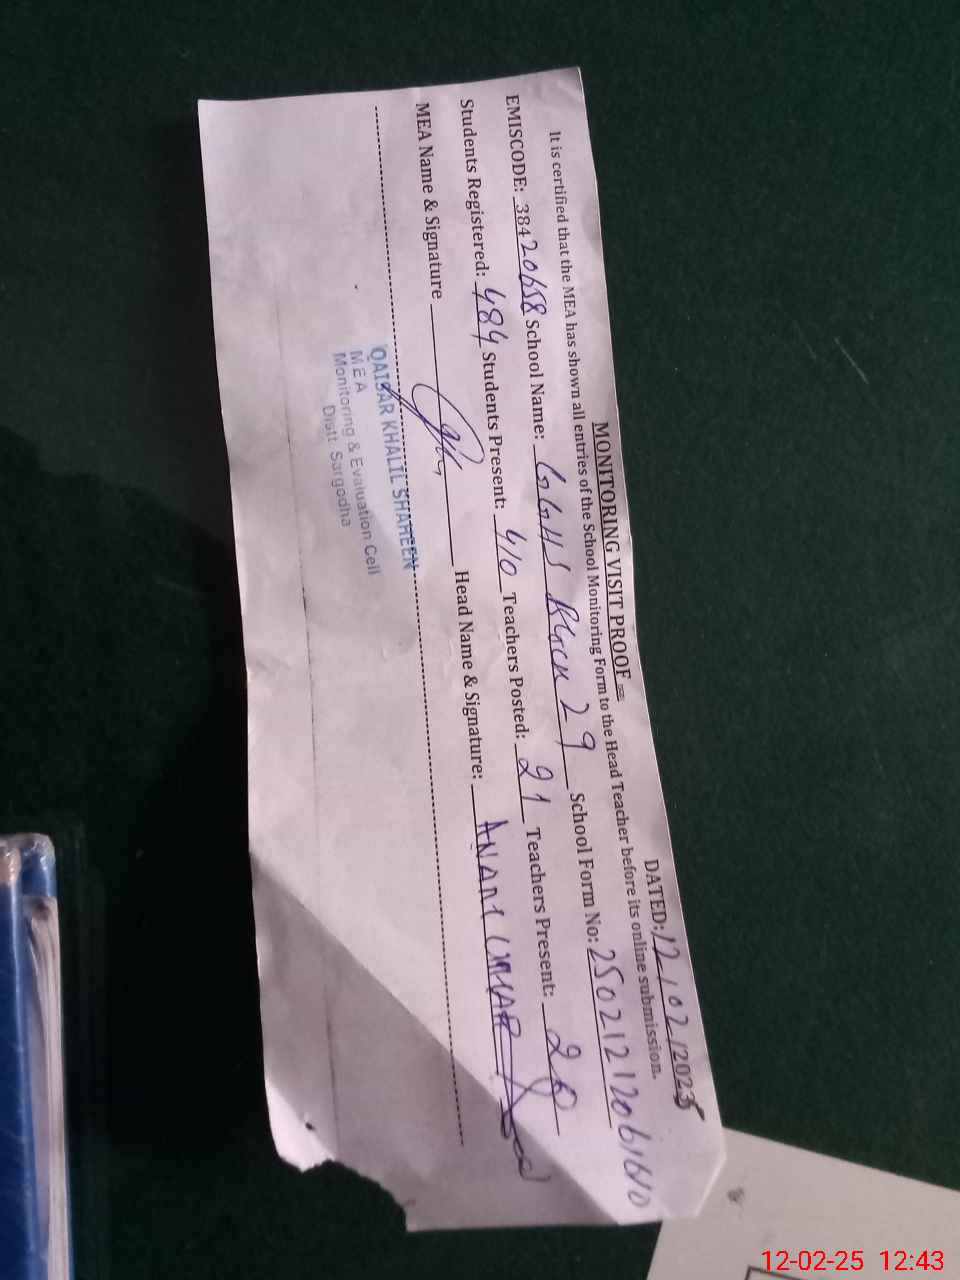 MONITORING VISIT PROOF
DATED: 12/02/2025
It is certified that the MEA has shown all entries of the School Monitoring Form to the Head Teacher before its online submission.
EMISCODE: 38420658 School Name: GGHS Block 29 School Form No:
Students Registered: 484 Students Present: 410 Teachers Posted: 21 Teachers Present: 20
MEA Name & Signature Head Name & Signature:
QAISAR KHALIL SHAHEEN
MEA
Monitoring & Evaluation Cell
Distt. Sargodha
12-02-25 12:43